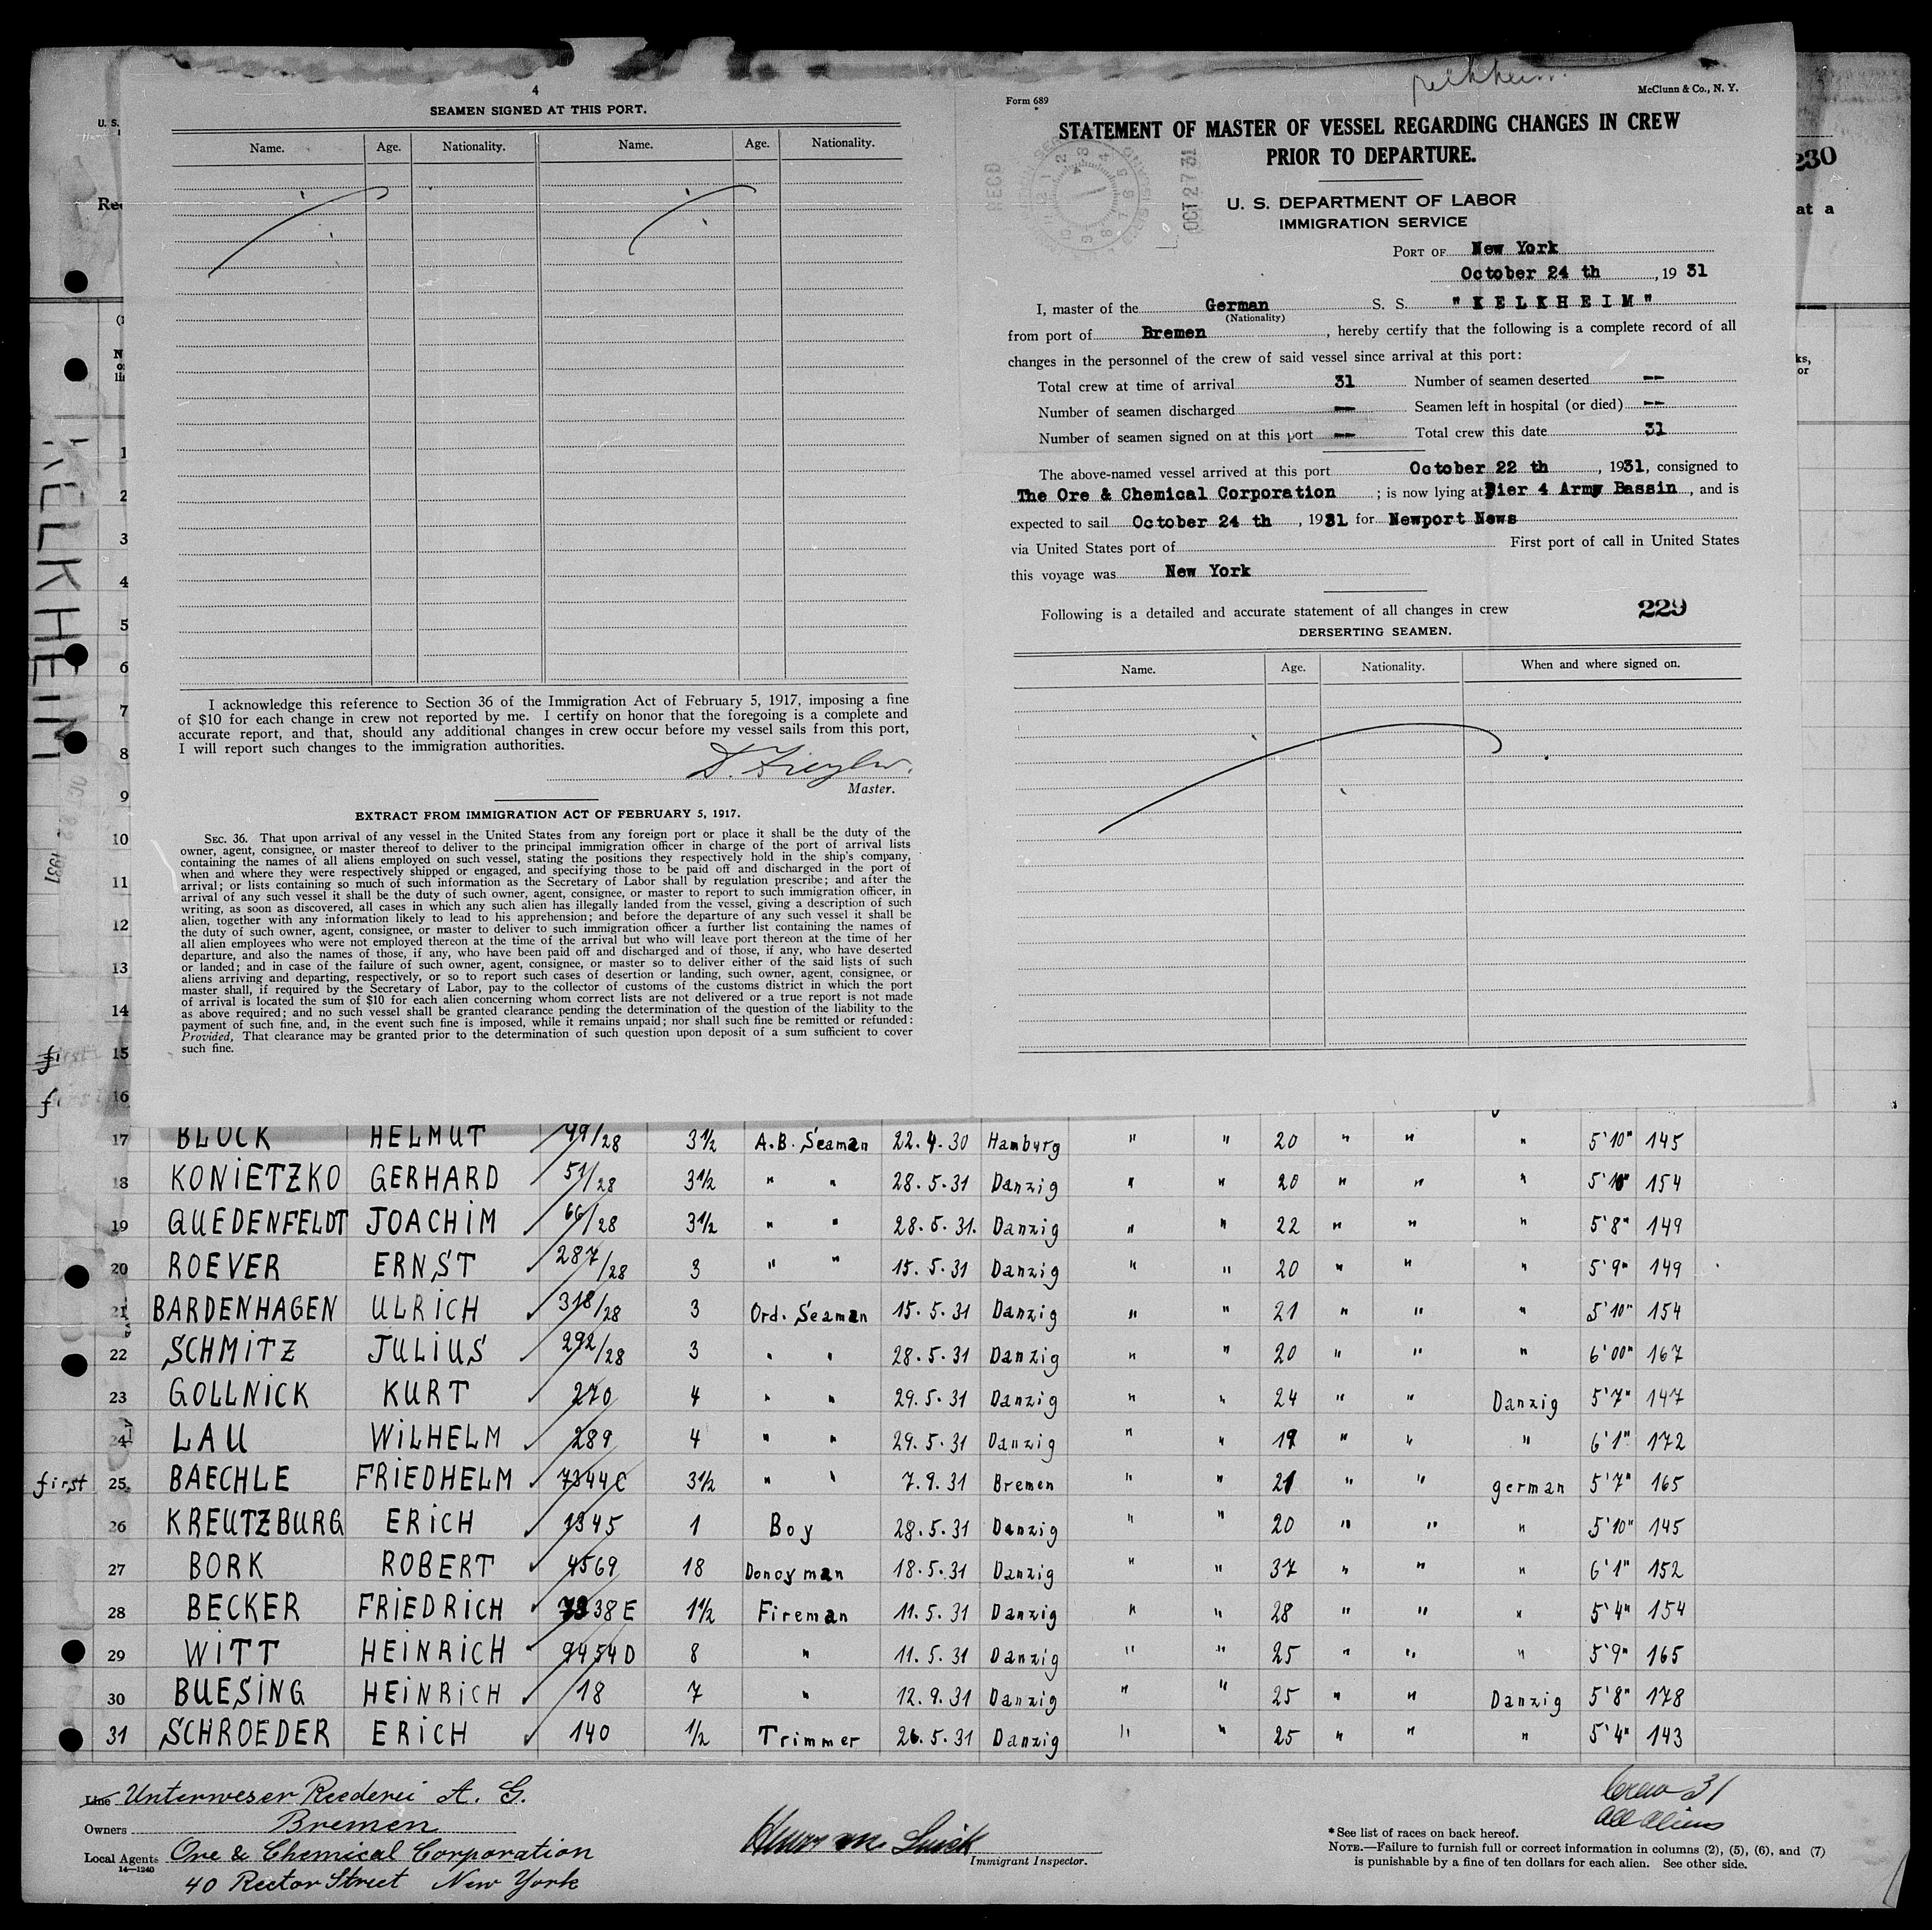 4
SEAMEN SIGNED AT THIS PORT.
Name. Age. Nationality. Name. Age. Nationality.
I acknowledge this reference to Section 36 of the Immigration Act of February 5, 1917, imposing a fine
of $10 for each change in crew not reported by me. I certify on honor that the foregoing is a complete and
accurate report, and that, should any additional changes in crew occur before my vessel sails from this port,
I will report such changes to the immigration authorities.
Master.
EXTRACT FROM IMMIGRATION ACT OF FEBRUARY 5, 1917.
SEC. 36. That upon arrival of any vessel in the United States from any foreign port or place it shall be the duty of the
owner, agent, consignee, or master thereof to deliver to the principal immigration officer in charge of the port of arrival lists
containing the names of all aliens employed on such vessel, stating the positions they respectively hold in the ship's company,
when and where they were respectively shipped or engaged, and specifying those to be paid off and discharged in the port of
arrival; or lists containing so much of such information as the Secretary of Labor shall by regulation prescribe; and after the
arrival of any such vessel it shall be the duty of such owner, agent, consignee, or master to report to such immigration officer, in
writing, as soon as discovered, all cases in which any such alien has illegally landed from the vessel, giving a description of such
alien, together with any information likely to lead to his apprehension; and before the departure of any such vessel it shall be
the duty of such owner, agent, consignee, or master to deliver to such immigration officer a further list containing the names of
all alien employees who were not employed thereon at the time of the arrival but who will leave port thereon at the time of her
departure, and also the names of those, if any, who have been paid off and discharged and of those, if any, who have deserted
or landed; and in case of the failure of such owner, agent, consignee, or master so to deliver either of the said lists of such
aliens arriving and departing, respectively, or so to report such cases of desertion or landing, such owner, agent, consignee, or
master shall, if required by the Secretary of Labor, pay to the collector of customs of the customs district in which the port
of arrival is located the sum of $10 for each alien concerning whom correct lists are not delivered or a true report is not made
as above required; and no such vessel shall be granted clearance pending the determination of the question of the liability to the
payment of such fine, and, in the event such fine is imposed, while it remains unpaid; nor shall such fine be remitted or refunded:
Provided, That clearance may be granted prior to the determination of such question upon deposit of a sum sufficient to cover
such fine.
Form 689
McClunn & Co., N. Y.
STATEMENT OF MASTER OF VESSEL REGARDING CHANGES IN CREW
PRIOR TO DEPARTURE.
RECD OCT 27 31
U. S. DEPARTMENT OF LABOR
IMMIGRATION SERVICE
PORT OF New York
October 24 th, 19 31
I, master of the German S. S. "KELKHEIM"
(Nationality)
from port of Bremen, hereby certify that the following is a complete record of all
changes in the personnel of the crew of said vessel since arrival at this port:
Total crew at time of arrival 31 Number of seamen deserted --
Number of seamen discharged -- Seamen left in hospital (or died) --
Number of seamen signed on at this port -- Total crew this date 31
The above-named vessel arrived at this port October 22 th, 1931, consigned to
The Ore & Chemical Corporation; is now lying at Pier 4 Army Bassin, and is
expected to sail October 24 th, 1931 for Newport News
via United States port of First port of call in United States
this voyage was New York
Following is a detailed and accurate statement of all changes in crew 229
DERSERTING SEAMEN.
Name. Age. Nationality. When and where signed on.
U. S.
230
at a
KELKHEIM
1
2
3
4
5
6
7
8
9
10
11
12
13
14
15
16
17 BLOCK HELMUT 49/28 3½ A.B. Seaman 22.4.30 Hamburg " " 20 " " " 5'10" 145
18 KONIETZKO GERHARD 51/28 3½ " " 28.5.31 Danzig " " 20 " " " 5'10" 154
19 QUEDENFELDT JOACHIM 66/28 3½ " " 28.5.31. Danzig " " 22 " " " 5'8" 149
20 ROEVER ERNST 287/28 3 " " 15.5.31 Danzig " " 20 " " " 5'9" 149
21 BARDENHAGEN ULRICH 318/28 3 Ord. Seaman 15.5.31 Danzig " " 21 " " " 5'10" 154
22 SCHMITZ JULIUS 292/28 3 " " 28.5.31 Danzig " " 20 " " " 6'00" 167
23 GOLLNICK KURT 270 4 " " 29.5.31 Danzig " " 24 " " Danzig 5'7" 147
24 LAU WILHELM 289 4 " " 29.5.31 Danzig " " 19 " " " 6'1" 172
first 25 BAECHLE FRIEDHELM 7344C 3½ " " 7.9.31 Bremen " " 21 " " german 5'7" 165
26 KREUTZBURG ERICH 1345 1 Boy 28.5.31 Danzig " " 20 " " " 5'10" 145
27 BORK ROBERT 4569 18 Donoyman 18.5.31 Danzig " " 37 " " " 6'1" 152
28 BECKER FRIEDRICH 7338E 1½ Fireman 11.5.31 Danzig " " 28 " " " 5'4" 154
29 WITT HEINRICH 9454D 8 " 11.5.31 Danzig " " 25 " " " 5'9" 165
30 BUESING HEINRICH 18 7 " 12.9.31 Danzig " " 25 " " Danzig 5'8" 178
31 SCHROEDER ERICH 140 ½ Trimmer 26.5.31 Danzig " " 25 " " " 5'4" 143
Line Unterweser Reederei A. G.
Owners Bremen
Local Agents Ore & Chemical Corporation
14—1240
40 Rector Street New York
Immigrant Inspector.
Crew 31
All aliens
*See list of races on back hereof.
NOTE.—Failure to furnish full or correct information in columns (2), (5), (6), and (7)
is punishable by a fine of ten dollars for each alien. See other side.